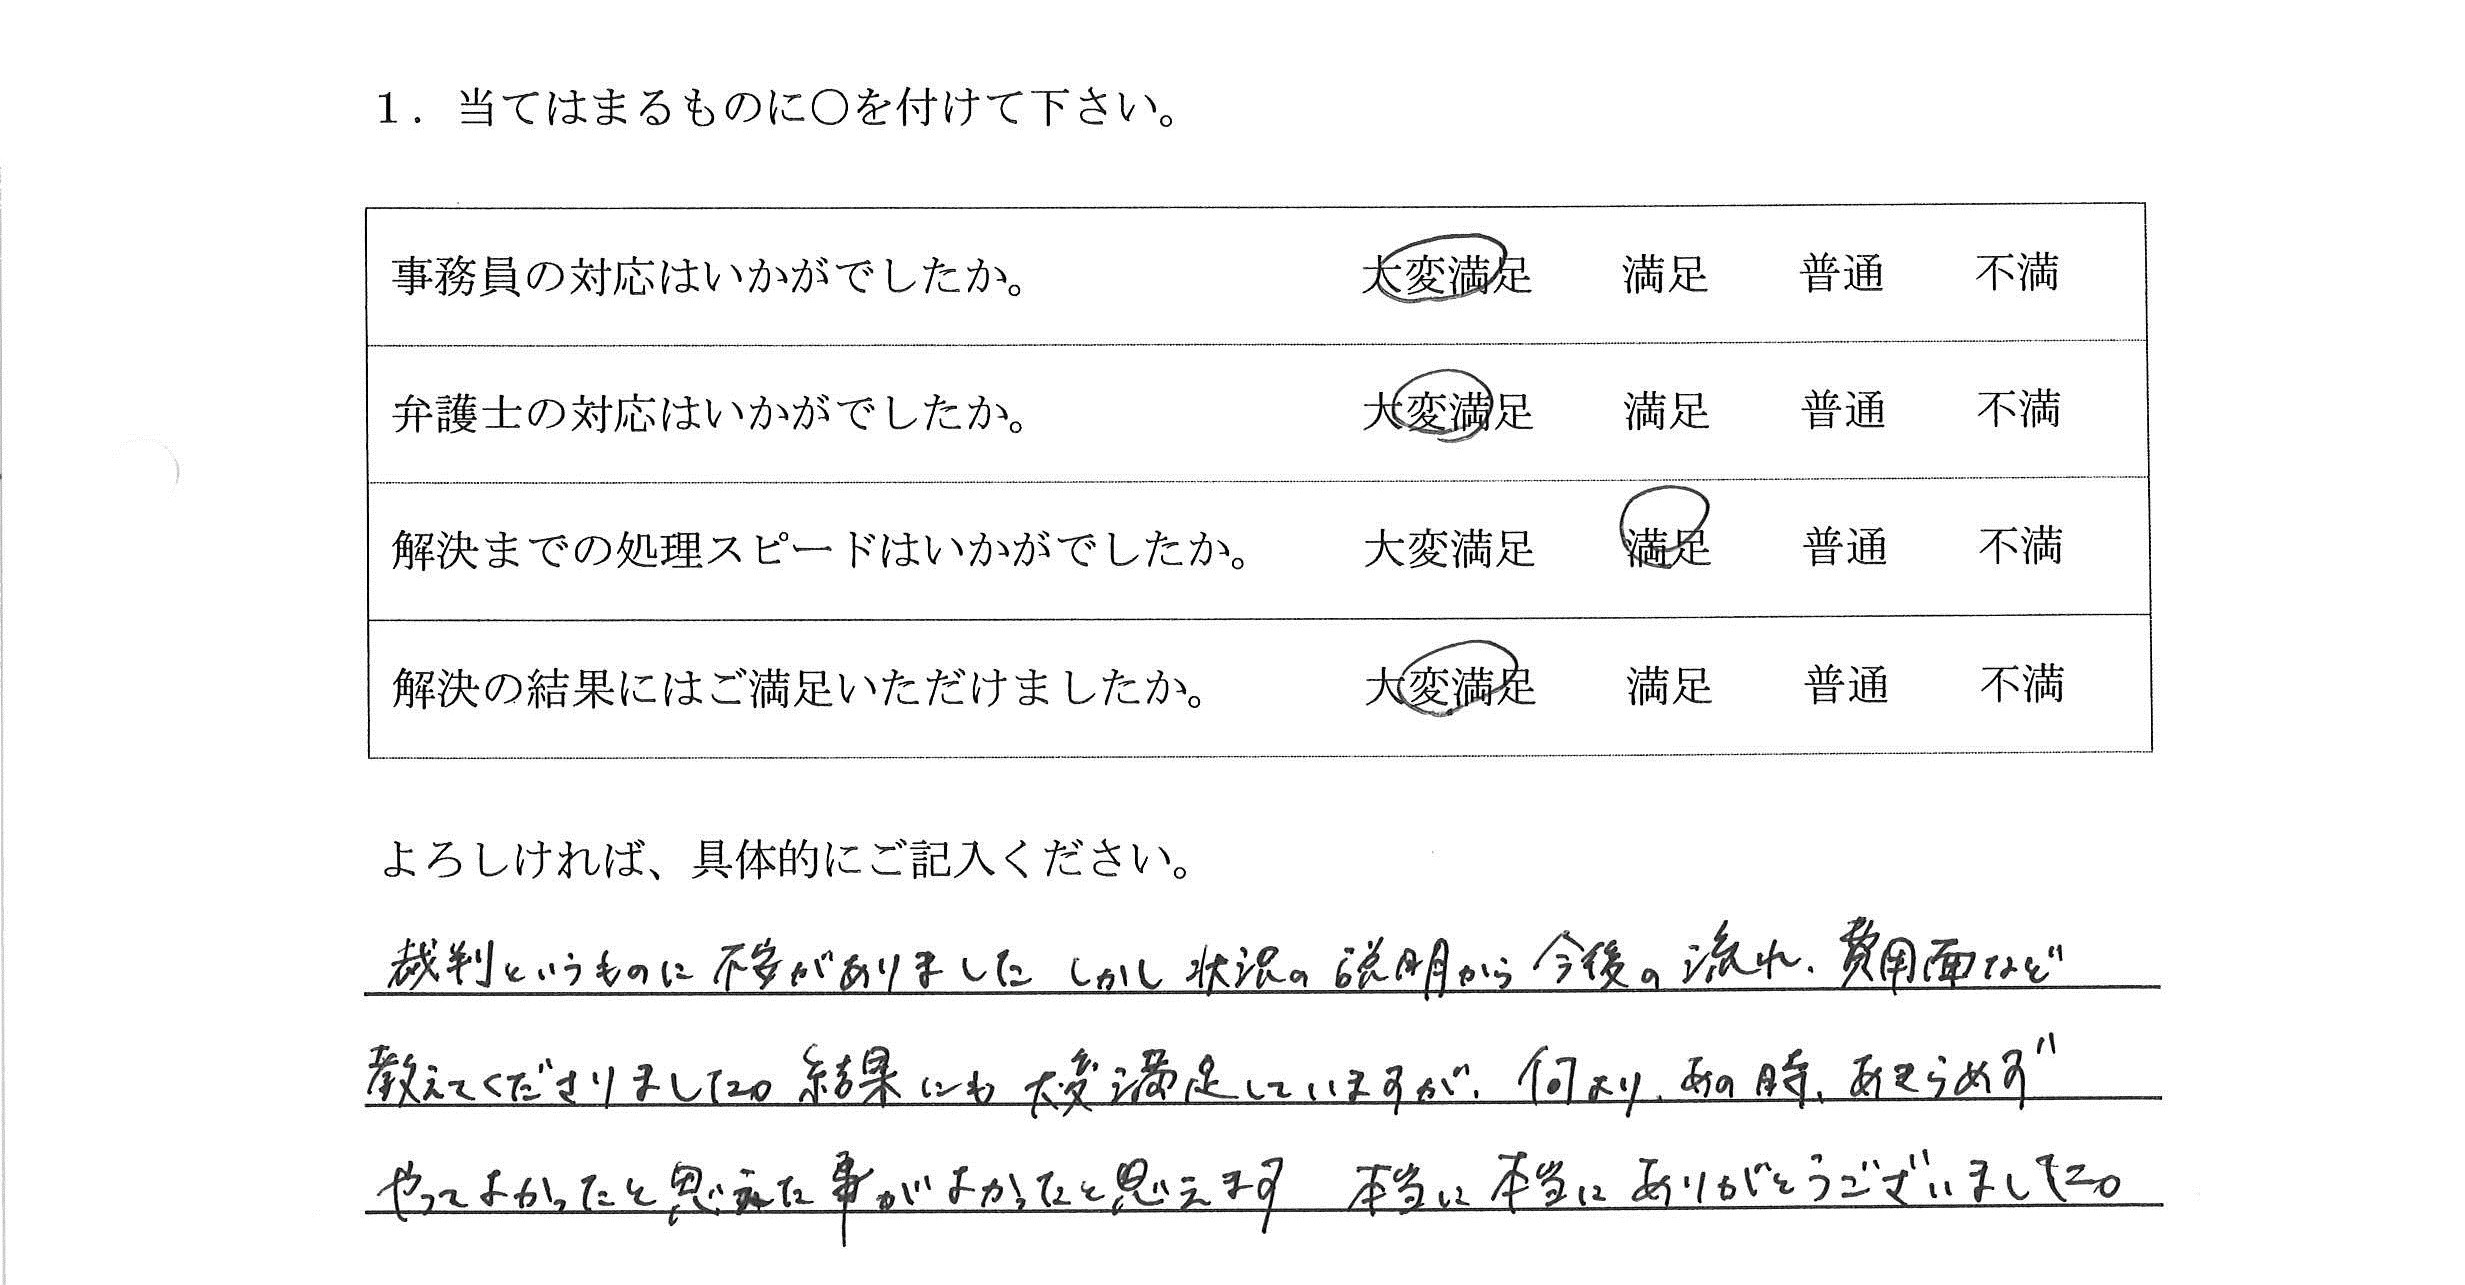 1．当てはまるものに〇を付けて下さい。
事務員の対応はいかがでしたか。 大変満足 満足 普通 不満
弁護士の対応はいかがでしたか。 大変満足 満足 普通 不満
解決までの処理スピードはいかがでしたか。 大変満足 満足 普通 不満
解決の結果にはご満足いただけましたか。 大変満足 満足 普通 不満
よろしければ、具体的にご記入ください。
裁判というものに不安がありました しかし 状況の説明から今後の流れ、費用面など
教えてくださりました。結果にも大変満足していますが、何より、あの時、あきらめず
やってよかったと思えた事がよかったと思えます 本当に本当にありがとうございました。